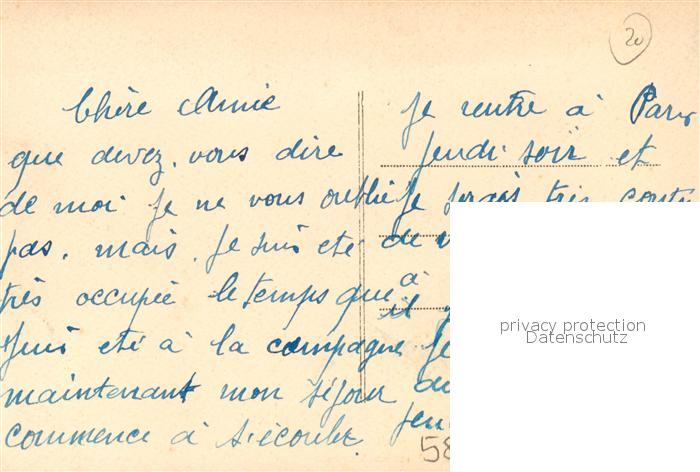 20
Chère Amie
que devez, vous dire
de moi je ne vous oublie
pas, mais, je suis eté
très occupée le temps que
suis eté à la campagne
maintenant mon séjour
commence à s'écouler
Je rentre à Paris
jeudi soir et
je serais très
de
à
il
je
privacy protection
Datenschutz
58